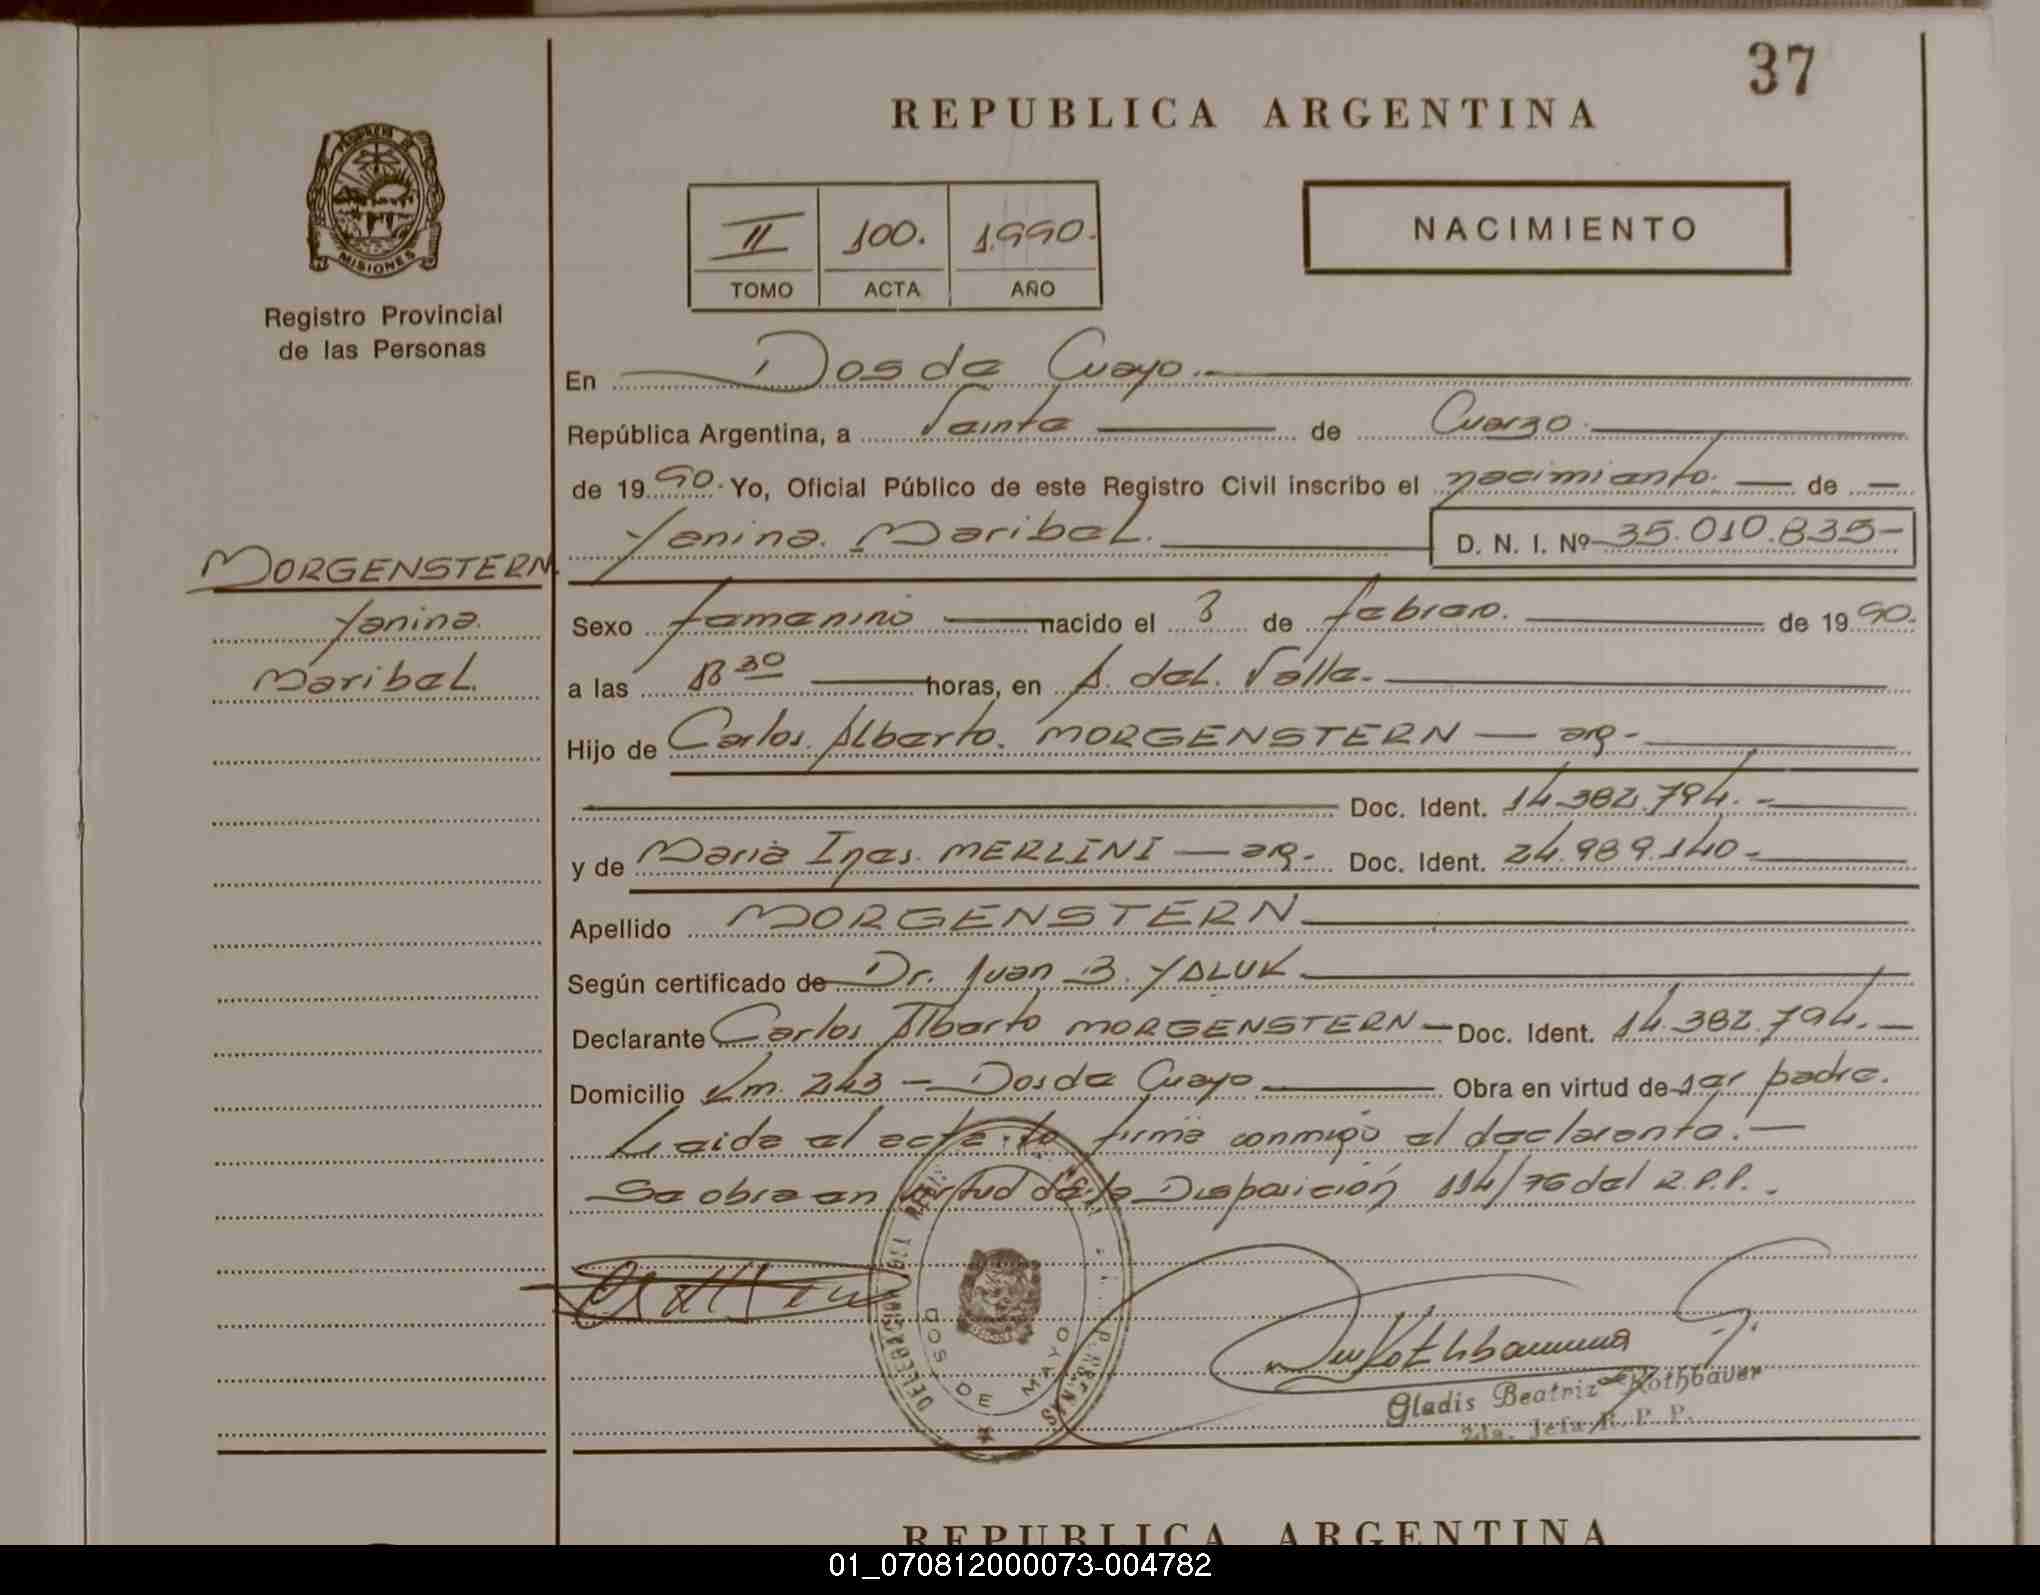 37
REPUBLICA ARGENTINA
MISIONES
Registro Provincial
de las Personas
II 100. 1.990.
TOMO ACTA AÑO
NACIMIENTO
En Dos de Mayo.
República Argentina, a Veinte de Marzo.
de 1990. Yo, Oficial Público de este Registro Civil inscribo el nacimiento. de
Yanina. Maribel. D. N. I. Nº 35.010.835
MORGENSTERN
Yanina.
Maribel.
Sexo femenino nacido el 3 de febrero. de 1990.
a las 18 30 horas, en A. del. Valle.
Hijo de Carlos. Alberto. MORGENSTERN — arg.
Doc. Ident. 14.382.794.
y de Maria Ines. MERLINI — arg. Doc. Ident. 24.989.140
Apellido MORGENSTERN
Según certificado de Dr. Juan B. YALUK
Declarante Carlos Alberto MORGENSTERN Doc. Ident. 14.382.794.
Domicilio Km. 243 — Dos de Mayo Obra en virtud de ser padre.
Leida el acta. la firma conmigo el declarante.
Se obra en virtud de la Disposición 114/76 del R.P.P.
DOS DE MAYO
Gladis Beatriz Rothbauer
2da. Jefa R. P. P.
REPUBLICA ARGENTINA
01_070812000073-004782